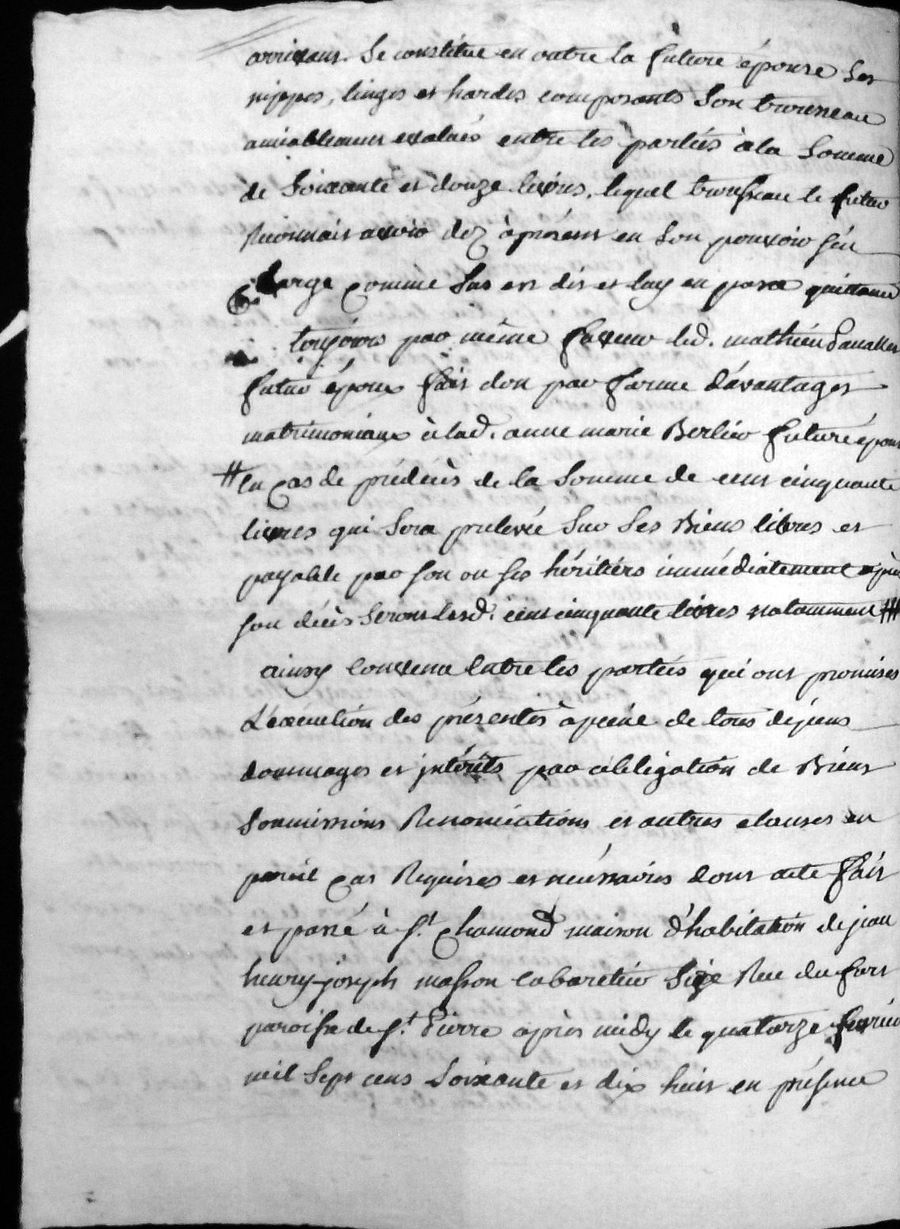 arrivant. Se constitue en outre la future épouse Ses
nippes, linges et hardes composants Son trousseau
amiablement evalués entre les parties à la Somme
de Soixante et douze livres, lequel trousseau le futur
Reconnait avoir dez àprésent en Son pouvoir s'en
charge comme Sus est dit et luy en passe quittance
toujours par même faveur led. mathieu
futur époux fait don par forme d'avantages
matrimoniaux à lad. anne marie Berlier future épouse
# En cas de prédécès de la Somme de cent cinquante
livres qui Sera prelevée Sur Ses Biens libres et
payable par son ou ses héritiers immédiatement après
son décès Seront lesd. cent cinquante livres notamment #
ainsy Convenu Entre les parties qui ont promises
L'exécution des présentes àpeine de tous dépens
dommages et intérêts par obbligation de Biens
Soumissions Renonciations et autres clauses en
pareil cas Requises et nécéssaires dont acte fait
et passé à St. Chamond maison d'habitation de jean
henry joseph masson cabaretier Size Rue du fort
paroisse de St. Pierre après midy le quatorze fevrier
mil Sept cens Soixante et dix huit en présence